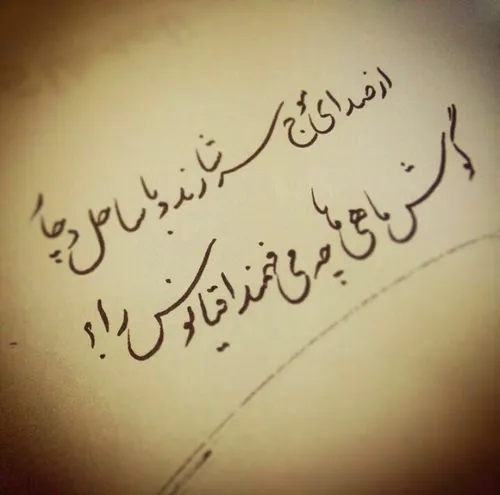 از صدای موج سرشارند و با ساحل دچار
گوش ماهی ها چه می فهمند اقیانوس را!؟